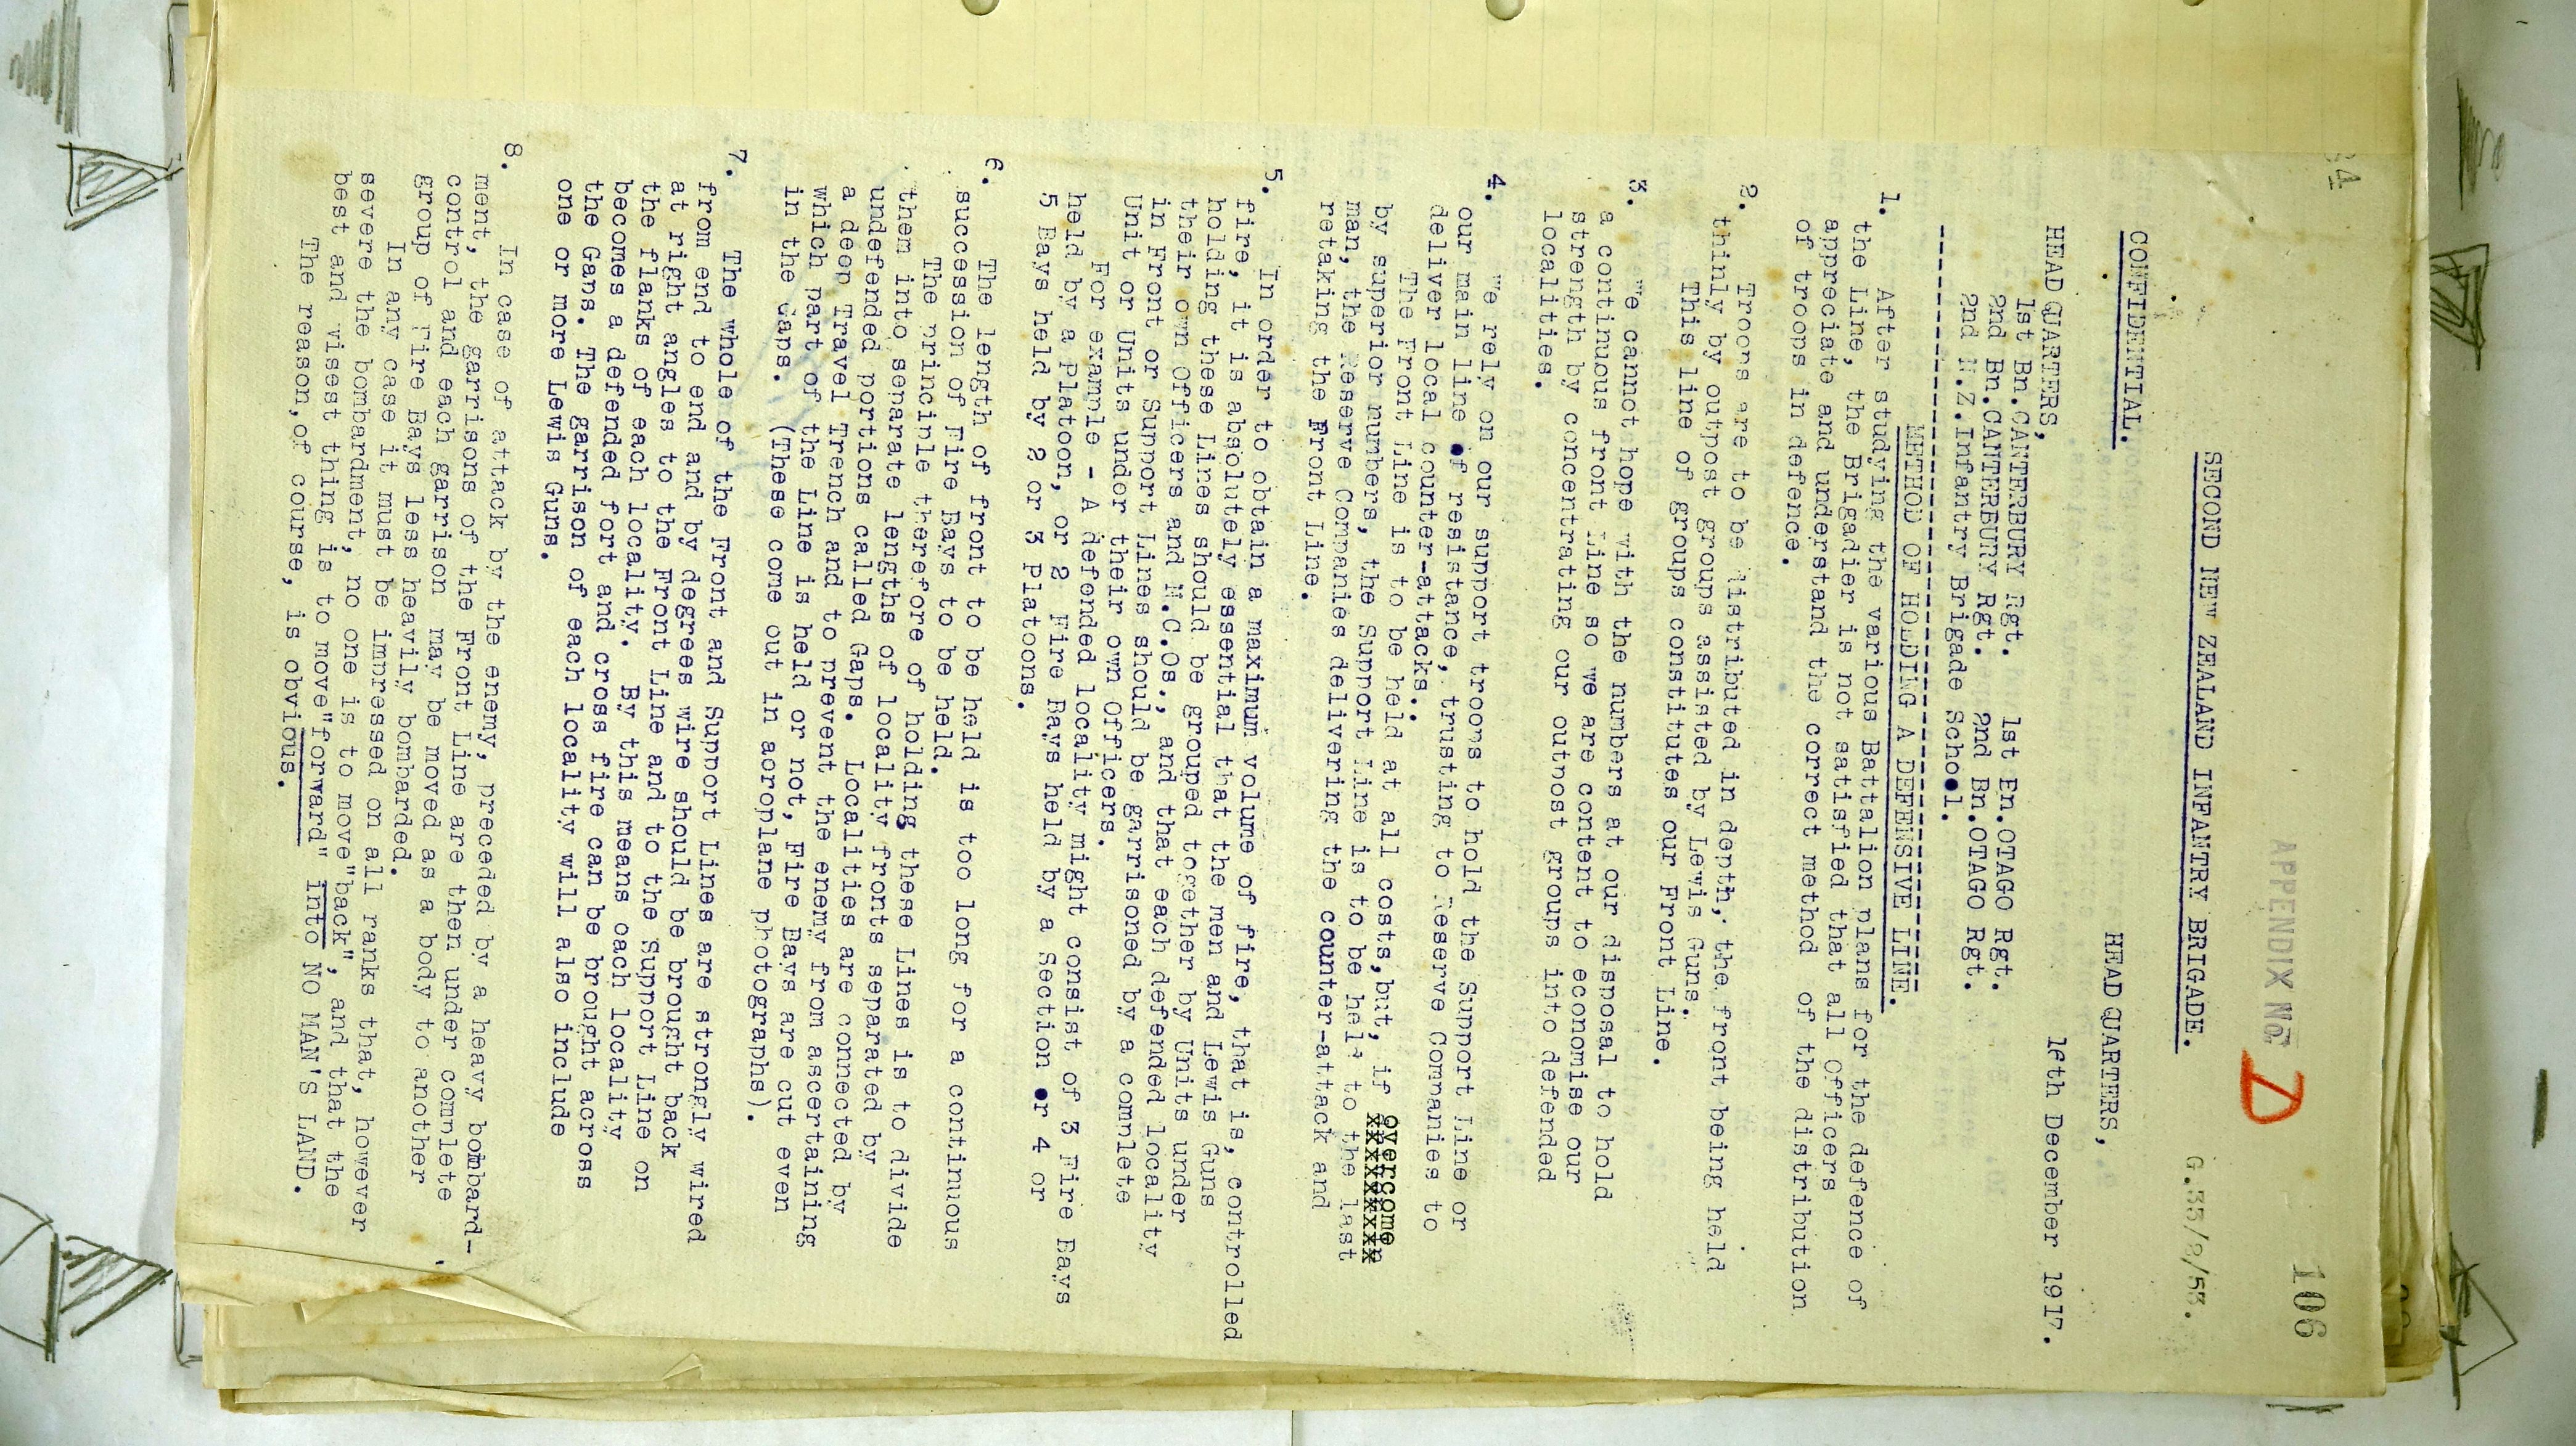 34
106
APPENDIX No D
SECOND NEW ZEALAND INFANTRY BRIGADE. G.33/2/53.
CONFIDENTIAL.
HEAD QUARTERS,
16th December 1917.
HEAD QUARTERS,
1st Bn.CANTERBURY Rgt. 1st Bn.OTAGO Rgt.
2nd Bn.CANTERBURY Rgt. 2nd Bn.OTAGO Rgt.
2nd N.Z.Infantry Brigade School.
METHOD OF HOLDING A DEFENSIVE LINE.
1. After studying the various Battalion plans for the defence of
the Line, the Brigadier is not satisfied that all Officers
appreciate and understand the correct method of the distribution
of troops in defence.
2. Troops are to be distributed in depth, the front being held
thinly by outpost groups assisted by Lewis Guns.
This line of groups constitutes our Front Line.
3. We cannot hope with the numbers at our disposal to hold
a continuous front Line so we are content to economise our
strength by concentrating our outpost groups into defended
localities.
4. We rely on our support troops to hold the Support Line or
our main line of resistance, trusting to Reserve Companies to
deliver local counter-attacks.
The Front Line is to be held at all costs,but, if overcome
by superior numbers, the Support Line is to be held to the last
man, the Reserve Companies delivering the counter-attack and
retaking the Front Line.
5. In order to obtain a maximum volume of fire, that is, controlled
fire, it is absolutely essential that the men and Lewis Guns
holding these Lines should be grouped together by Units under
their own Officers and N.C.Os., and that each defended locality
in Front or Support Lines should be garrisoned by a complete
Unit or Units under their own Officers.
For example - A defended locality might consist of 3 Fire Bays
held by a Platoon, or 2 Fire Bays held by a Section or 4 or
5 Bays held by 2 or 3 Platoons.
6. The length of front to be held is too long for a continuous
succession of Fire Bays to be held.
The principle therefore of holding these Lines is to divide
them into separate lengths of locality fronts separated by
undefended portions called Gaps. Localities are connected by
a deep Travel Trench and to prevent the enemy from ascertaining
which part of the Line is held or not, Fire Bays are cut even
in the Gaps. (These come out in aeroplane photographs).
7. The whole of the Front and Support Lines are strongly wired
from end to end and by degrees wire should be brought back
at right angles to the Front Line and to the Support Line on
the flanks of each locality. By this means each locality
becomes a defended fort and cross fire can be brought across
the Gaps. The garrison of each locality will also include
one or more Lewis Guns.
8. In case of attack by the enemy, preceded by a heavy bombard-
ment, the garrisons of the Front Line are then under complete
control and each garrison may be moved as a body to another
group of Fire Bays less heavily bombarded.
In any case it must be impressed on all ranks that, however
severe the bombardment, no one is to move"back", and that the
best and wisest thing is to move"forward" into NO MAN'S LAND.
The reason,of course, is obvious.